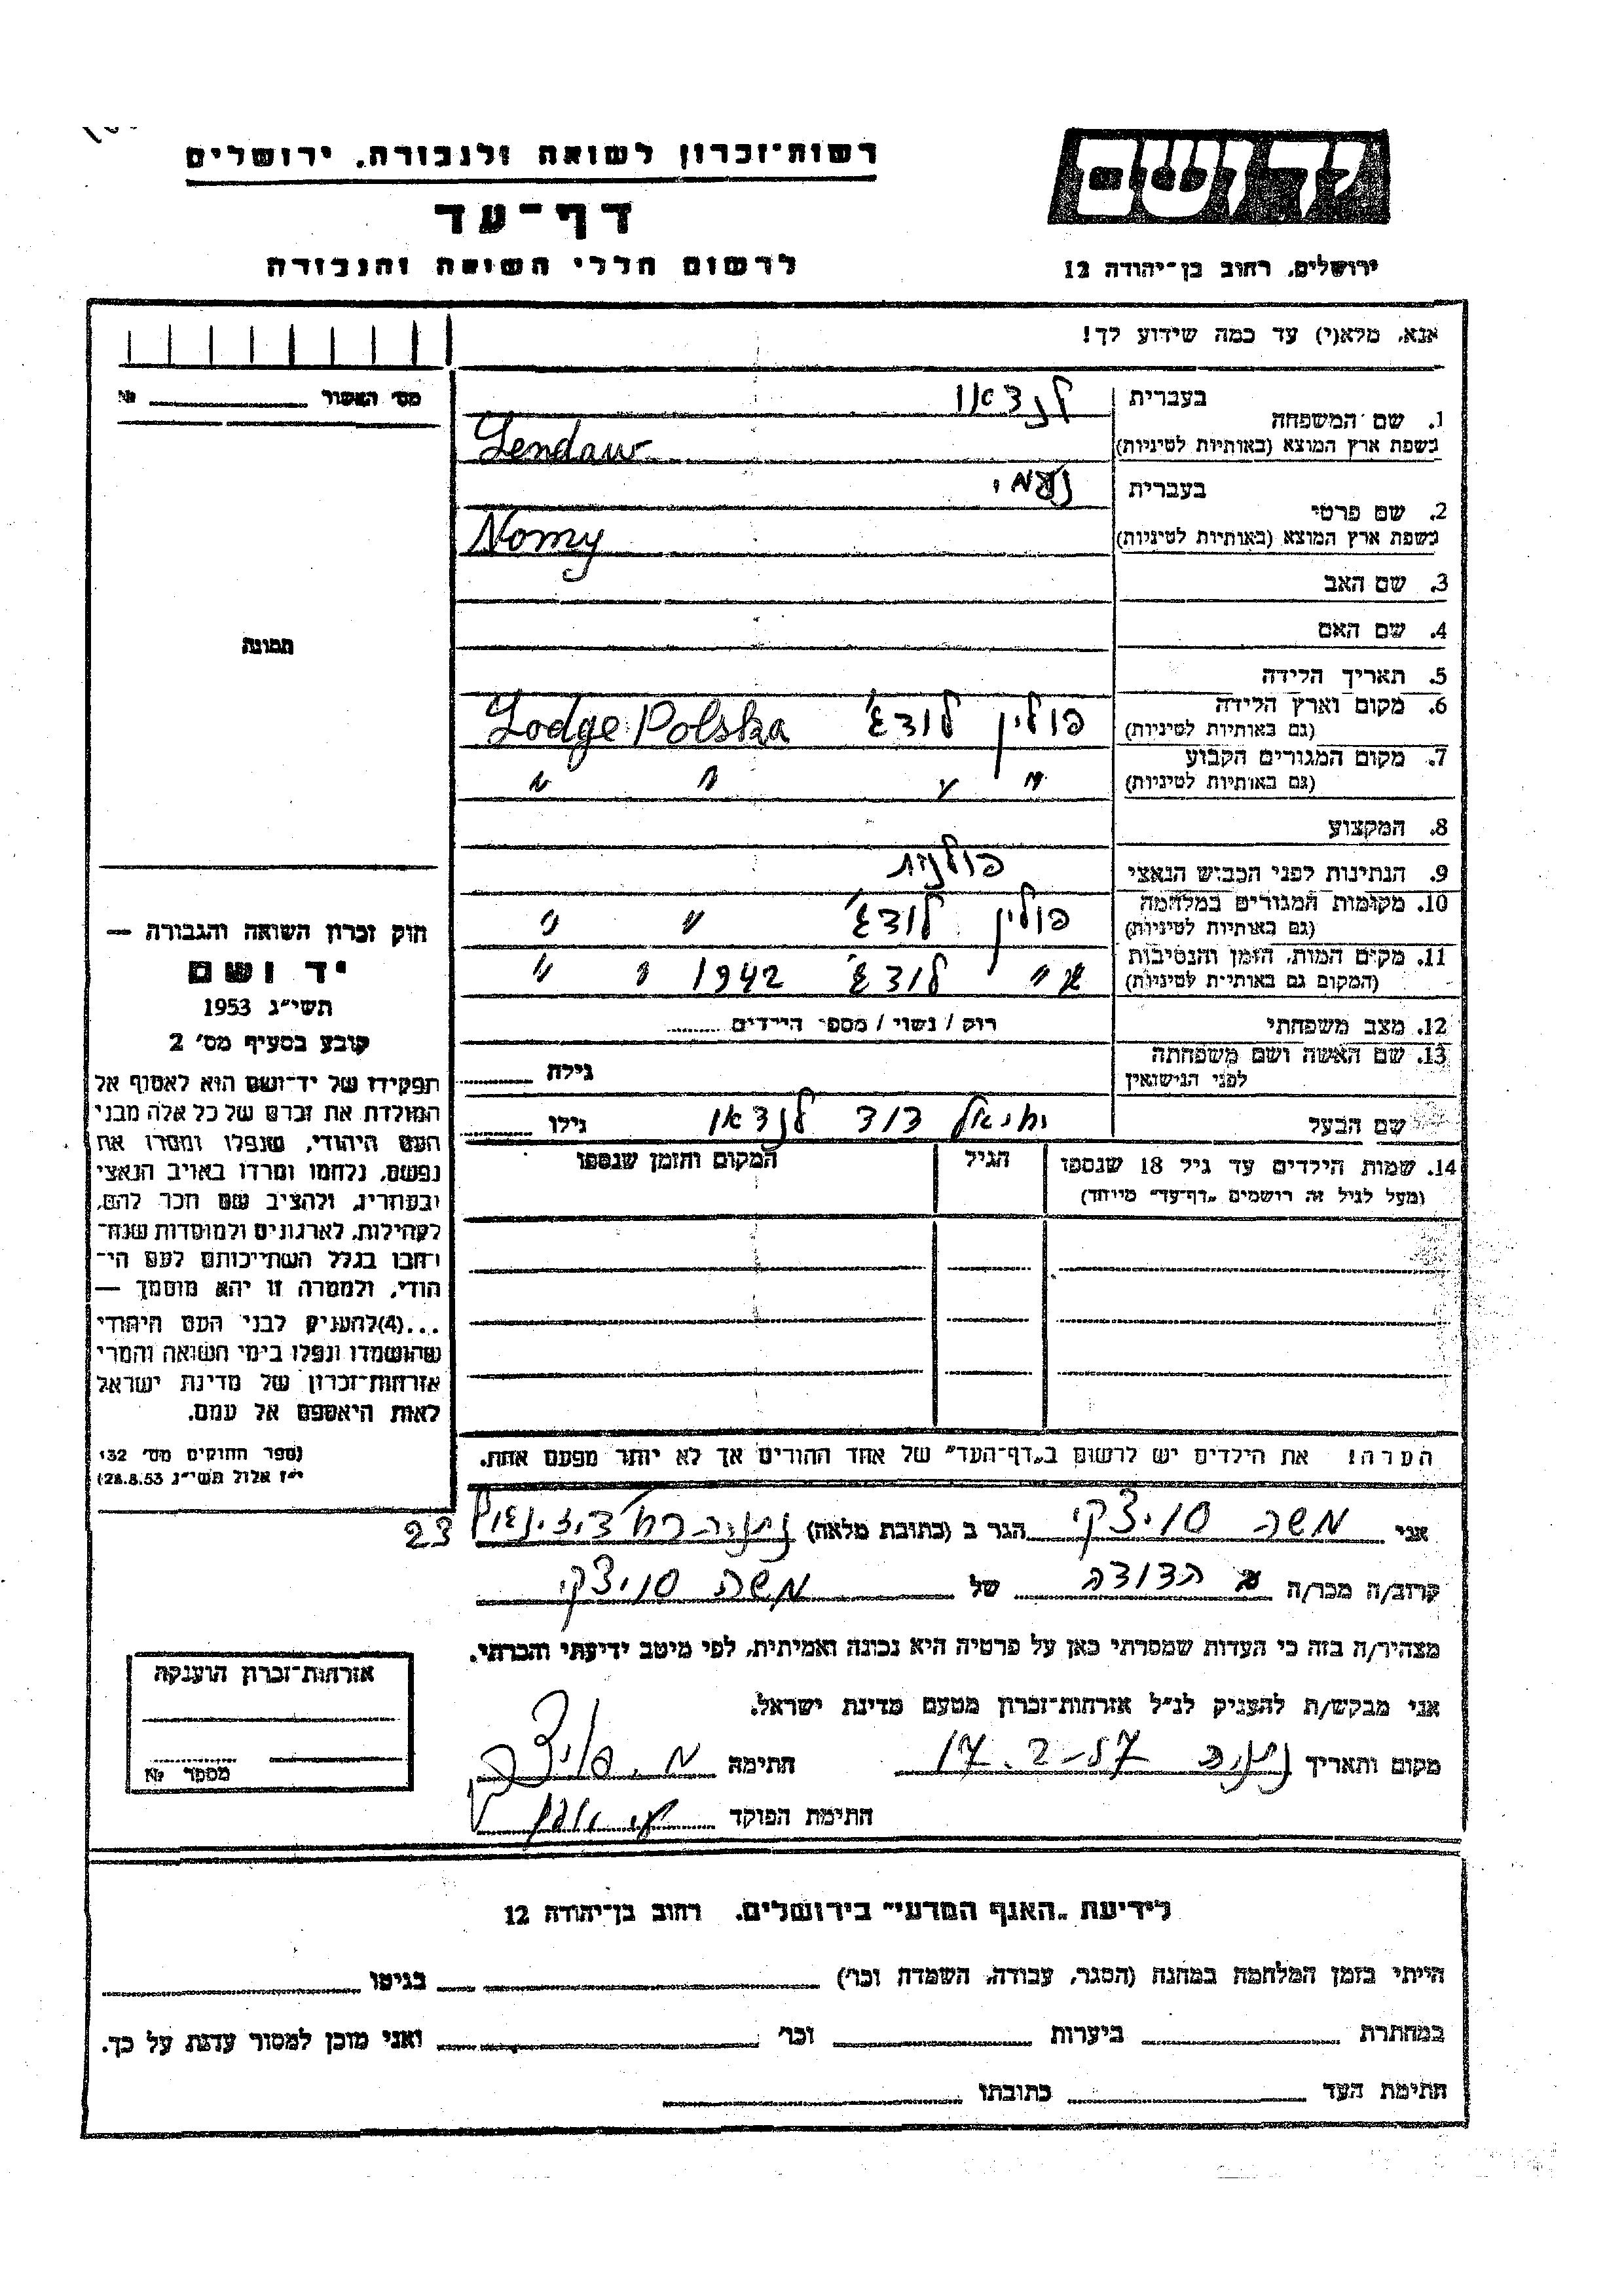 רשות־זכרון לשואה ולגבורה, ירושלים
דף־עד
לרשום חללי השואה והגבורה
יד ושם
ירושלים, רחוב בן־יהודה 12
אנא, מלא(י) עד כמה שידוע לך!
מס׳ האשור № 
1. שם המשפחה בעברית לנדאו
בשפת ארץ המוצא (באותיות לטיניות) Lendaw
2. שם פרטי בעברית נעמי
בשפת ארץ המוצא (באותיות לטיניות) Nomy
3. שם האב
4. שם האם
תמונה
5. תאריך הלידה
6. מקום וארץ הלידה (גם באותיות לטיניות) פולין לודג׳ Lodge Polska
7. מקום המגורים הקבוע (גם באותיות לטיניות) " " " "
8. המקצוע
9. הנתינות לפני הכבוש הנאצי פולנית
10. מקומות המגורים במלחמה (גם באותיות לטיניות) פולין לודג׳ " "
11. מקום המות, הזמן והנסיבות (המקום גם באותיות לטיניות) " לודג׳ 1942 " "
12. מצב משפחתי רווק / נשוי / מספר הילדים
13. שם האשה ושם משפחתה לפני הנישואין גילה
שם הבעל יחיאל דוד לנדאו גילו
14. שמות הילדים עד גיל 18 שנספו הגיל המקום והזמן שנספו
(מעל לגיל זה רושמים „דף־עד" מיוחד)
חוק זכרון השואה והגבורה —
יד ושם
תשי״ג 1953
קובע בסעיף מס׳ 2
תפקידו של יד־ושם הוא לאסוף אל
המולדת את זכרם של כל אלה מבני
העם היהודי, שנפלו ומסרו את
נפשם, נלחמו ומרדו באויב הנאצי
ובעוזריו, ולהציב שם וזכר להם,
לקהילות, לארגונים ולמוסדות שנח־
רבו בגלל השתייכותם לעם הי־
הודי, ולמטרה זו יהא מוסמך —
...(4)להעניק לבני העם היהודי
שהושמדו ונפלו בימי השואה והמרי
אזרחות־זכרון של מדינת ישראל
לאות היאספם אל עמם.
(ספר החוקים מס׳ 132
י״ז אלול תשי״ג 28.8.53)
הערה! את הילדים יש לרשום ב„דף־העד" של אחד ההורים אך לא יותר מפעם אחת.
אני משה סויצקי הגר ב (כתובת מלאה) נתניה רח׳ 23
קרוב/ה מכר/ה הדודה של משה סויצקי
מצהיר/ה בזה כי העדות שמסרתי כאן על פרטיה היא נכונה ואמיתית, לפי מיטב ידיעתי והכרתי.
אני מבקש/ת להעניק לנ״ל אזרחות־זכרון מטעם מדינת ישראל.
מקום ותאריך נתניה 17.2-57 חתימה
חתימת הפוקד
אזרחות־זכרון הוענקה
מספר №
לידיעת „האגף המדעי" בירושלים, רחוב בן־יהודה 12
הייתי בזמן המלחמה במחנה (הסגר, עבודה, השמדה וכר׳) בגיטו
במחתרת ביערות וכר׳ ואני מוכן למסור עדות על כך.
חתימת העד כתובתו